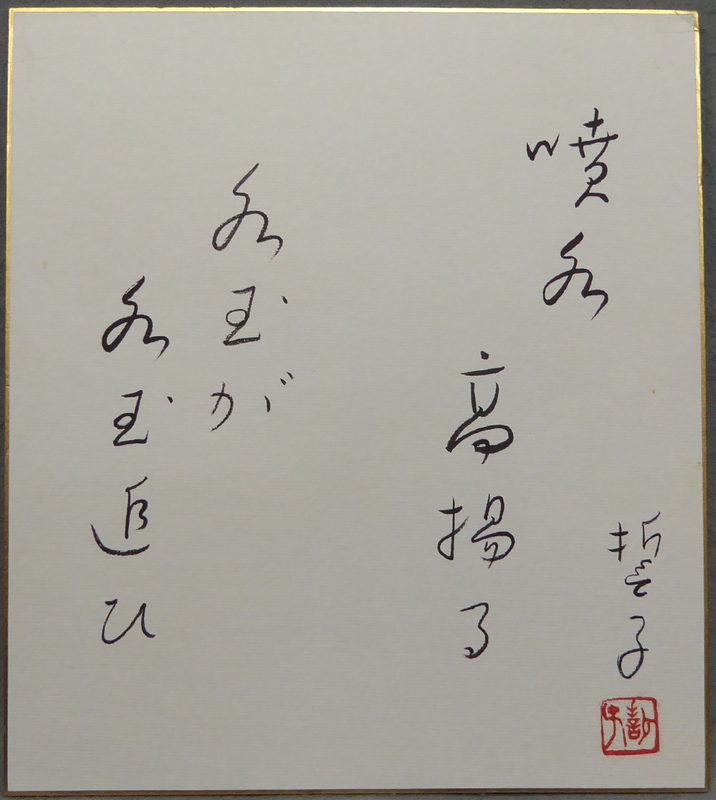 噴水
高揚る
水玉が
水玉追ひ
誓子